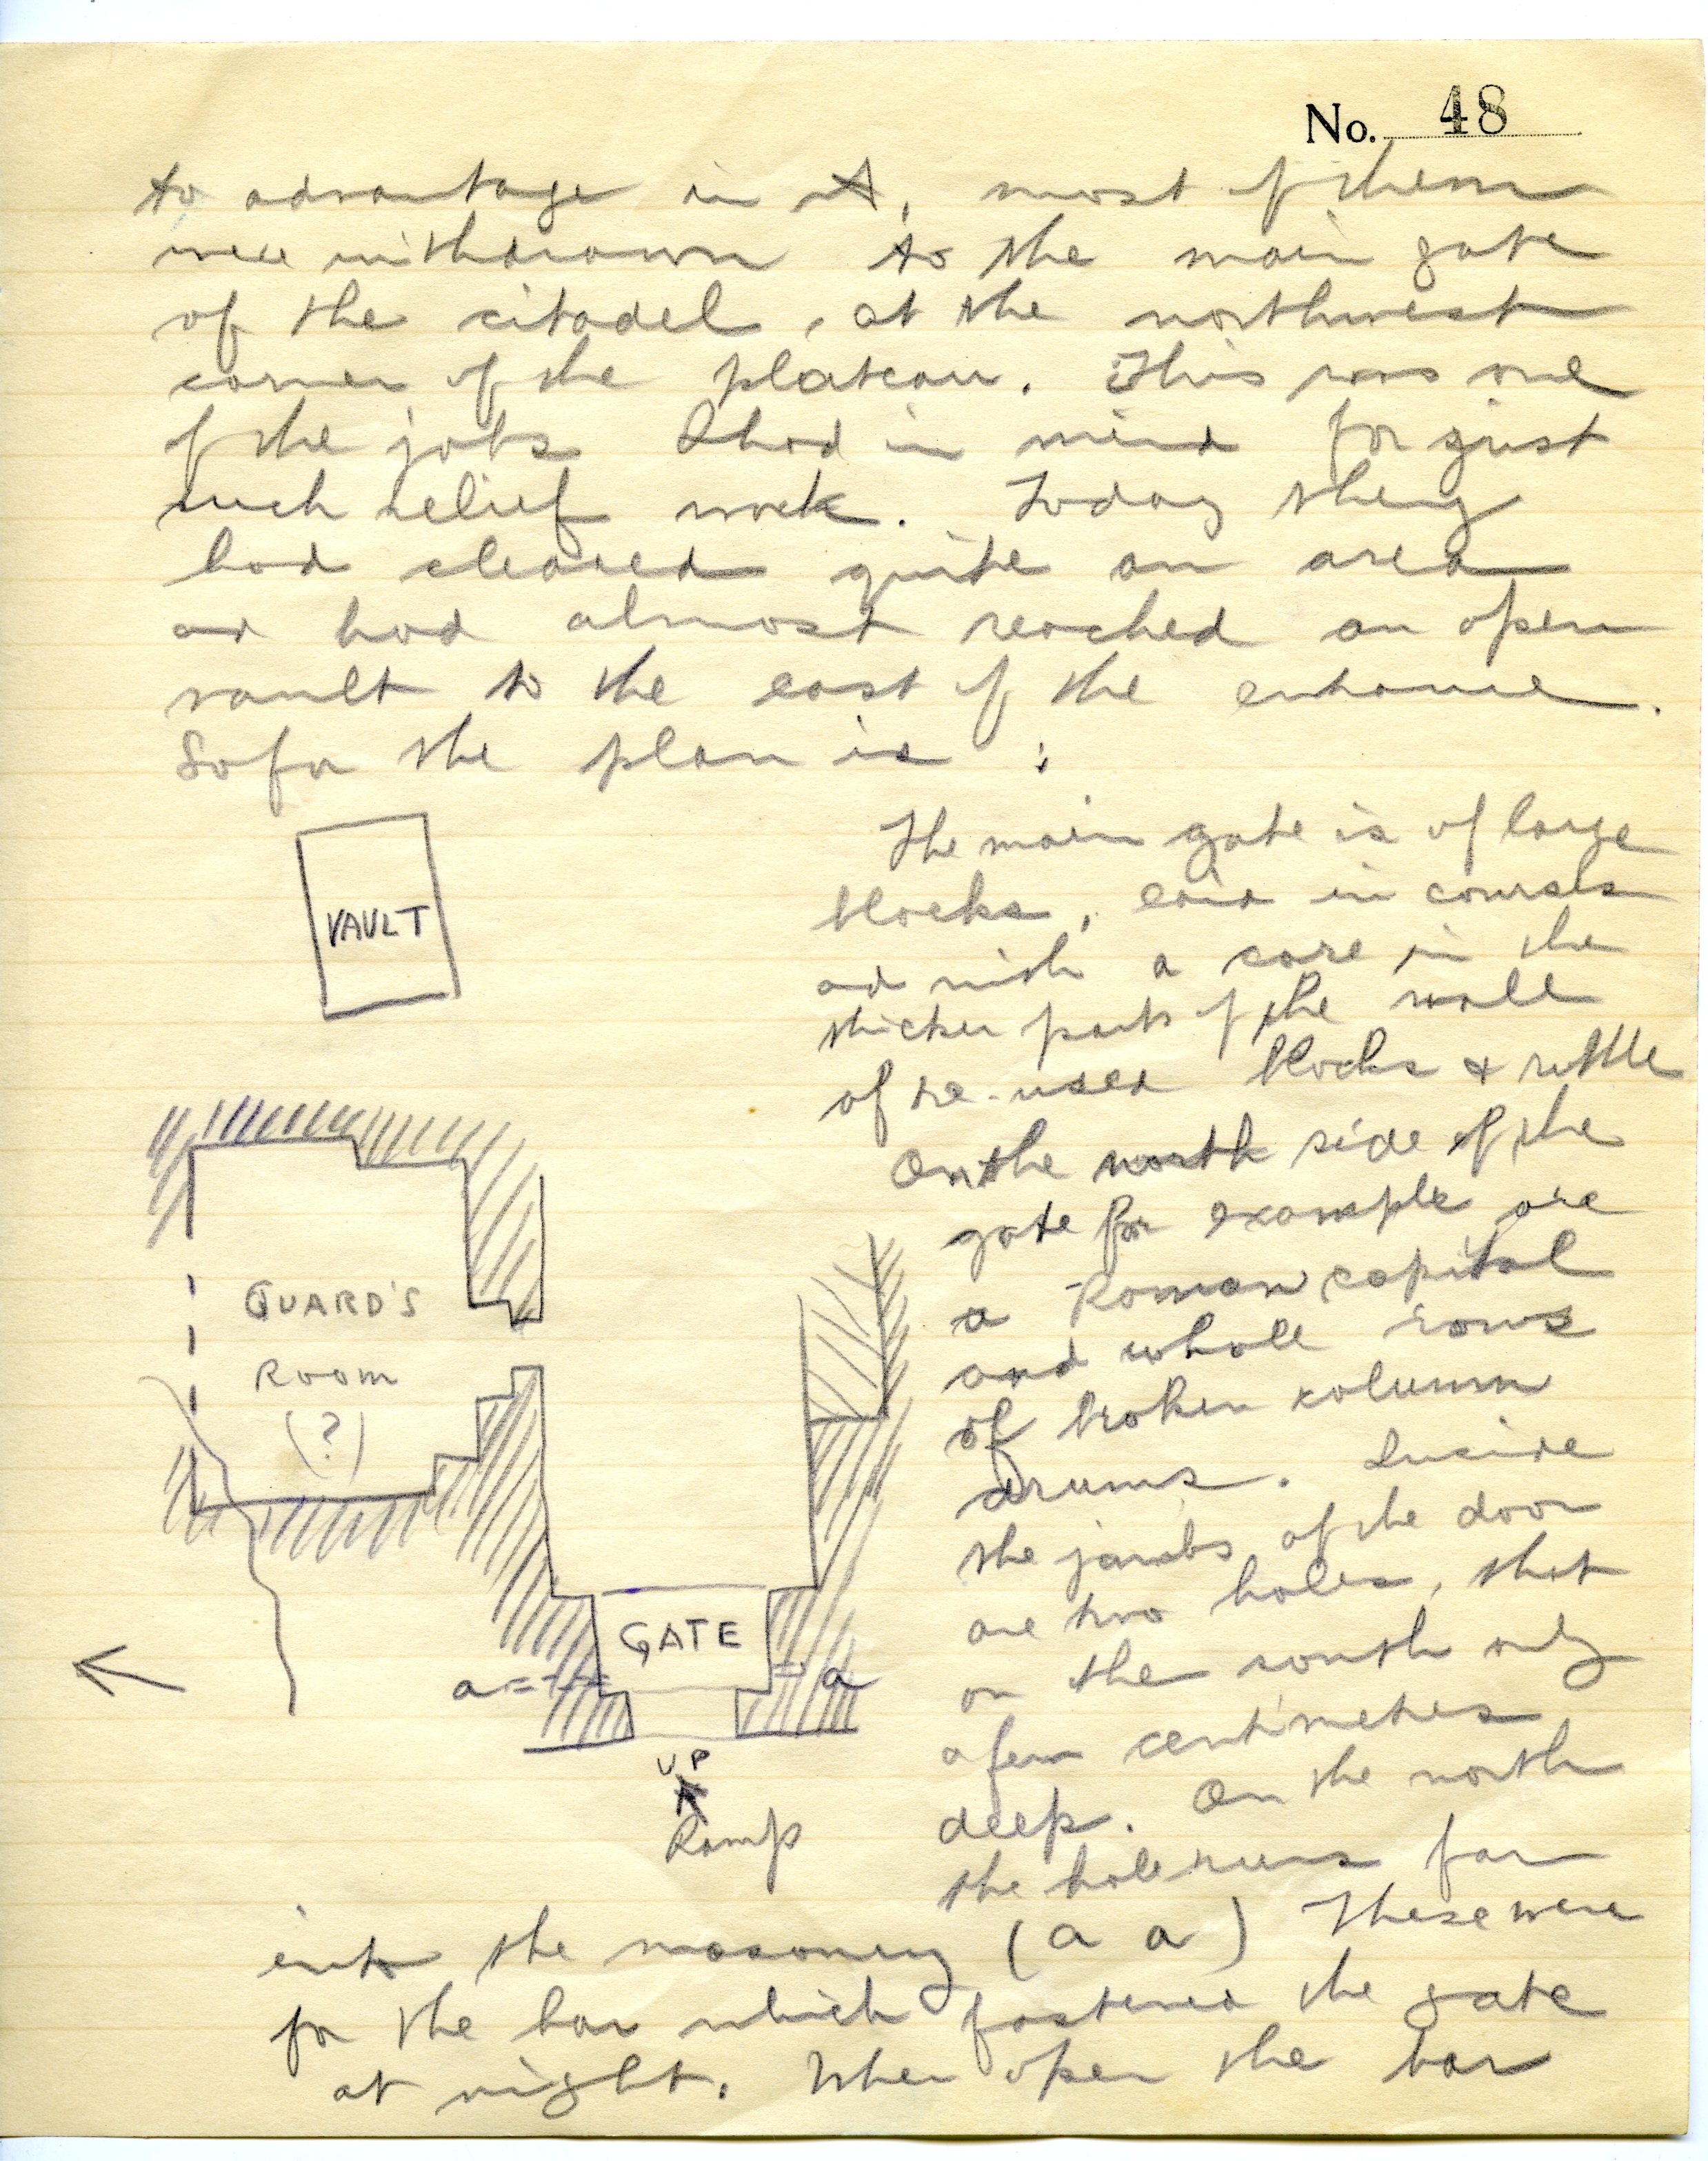 No. 48
to advantage in it, most of them
were withdrawn to the main gate
of the citadel, at the northwest
corner of the plateau. This was one
of the jobs I had in mind for just
such relief work. Today they
had cleared quite an area
and had almost reached an open
vault to the east of the entrance.
So far the plan is :
The main gate is of large
blocks, laid in courses
and with a core in the
thicker parts of the wall
of re-used blocks & rubble
On the north side of the
gate for example are
a Roman capital
and whole rows
of broken column
drums. Inside
the jambs of the door
are two holes, that
on the south only
a few centimeters
deep. On the north
the hole runs far
into the masonry (a a) These were
for the bar which fastened the gate
at night. When open the bar
VAULT
GUARD'S
ROOM
(?)
GATE
a a
UP
Ramp